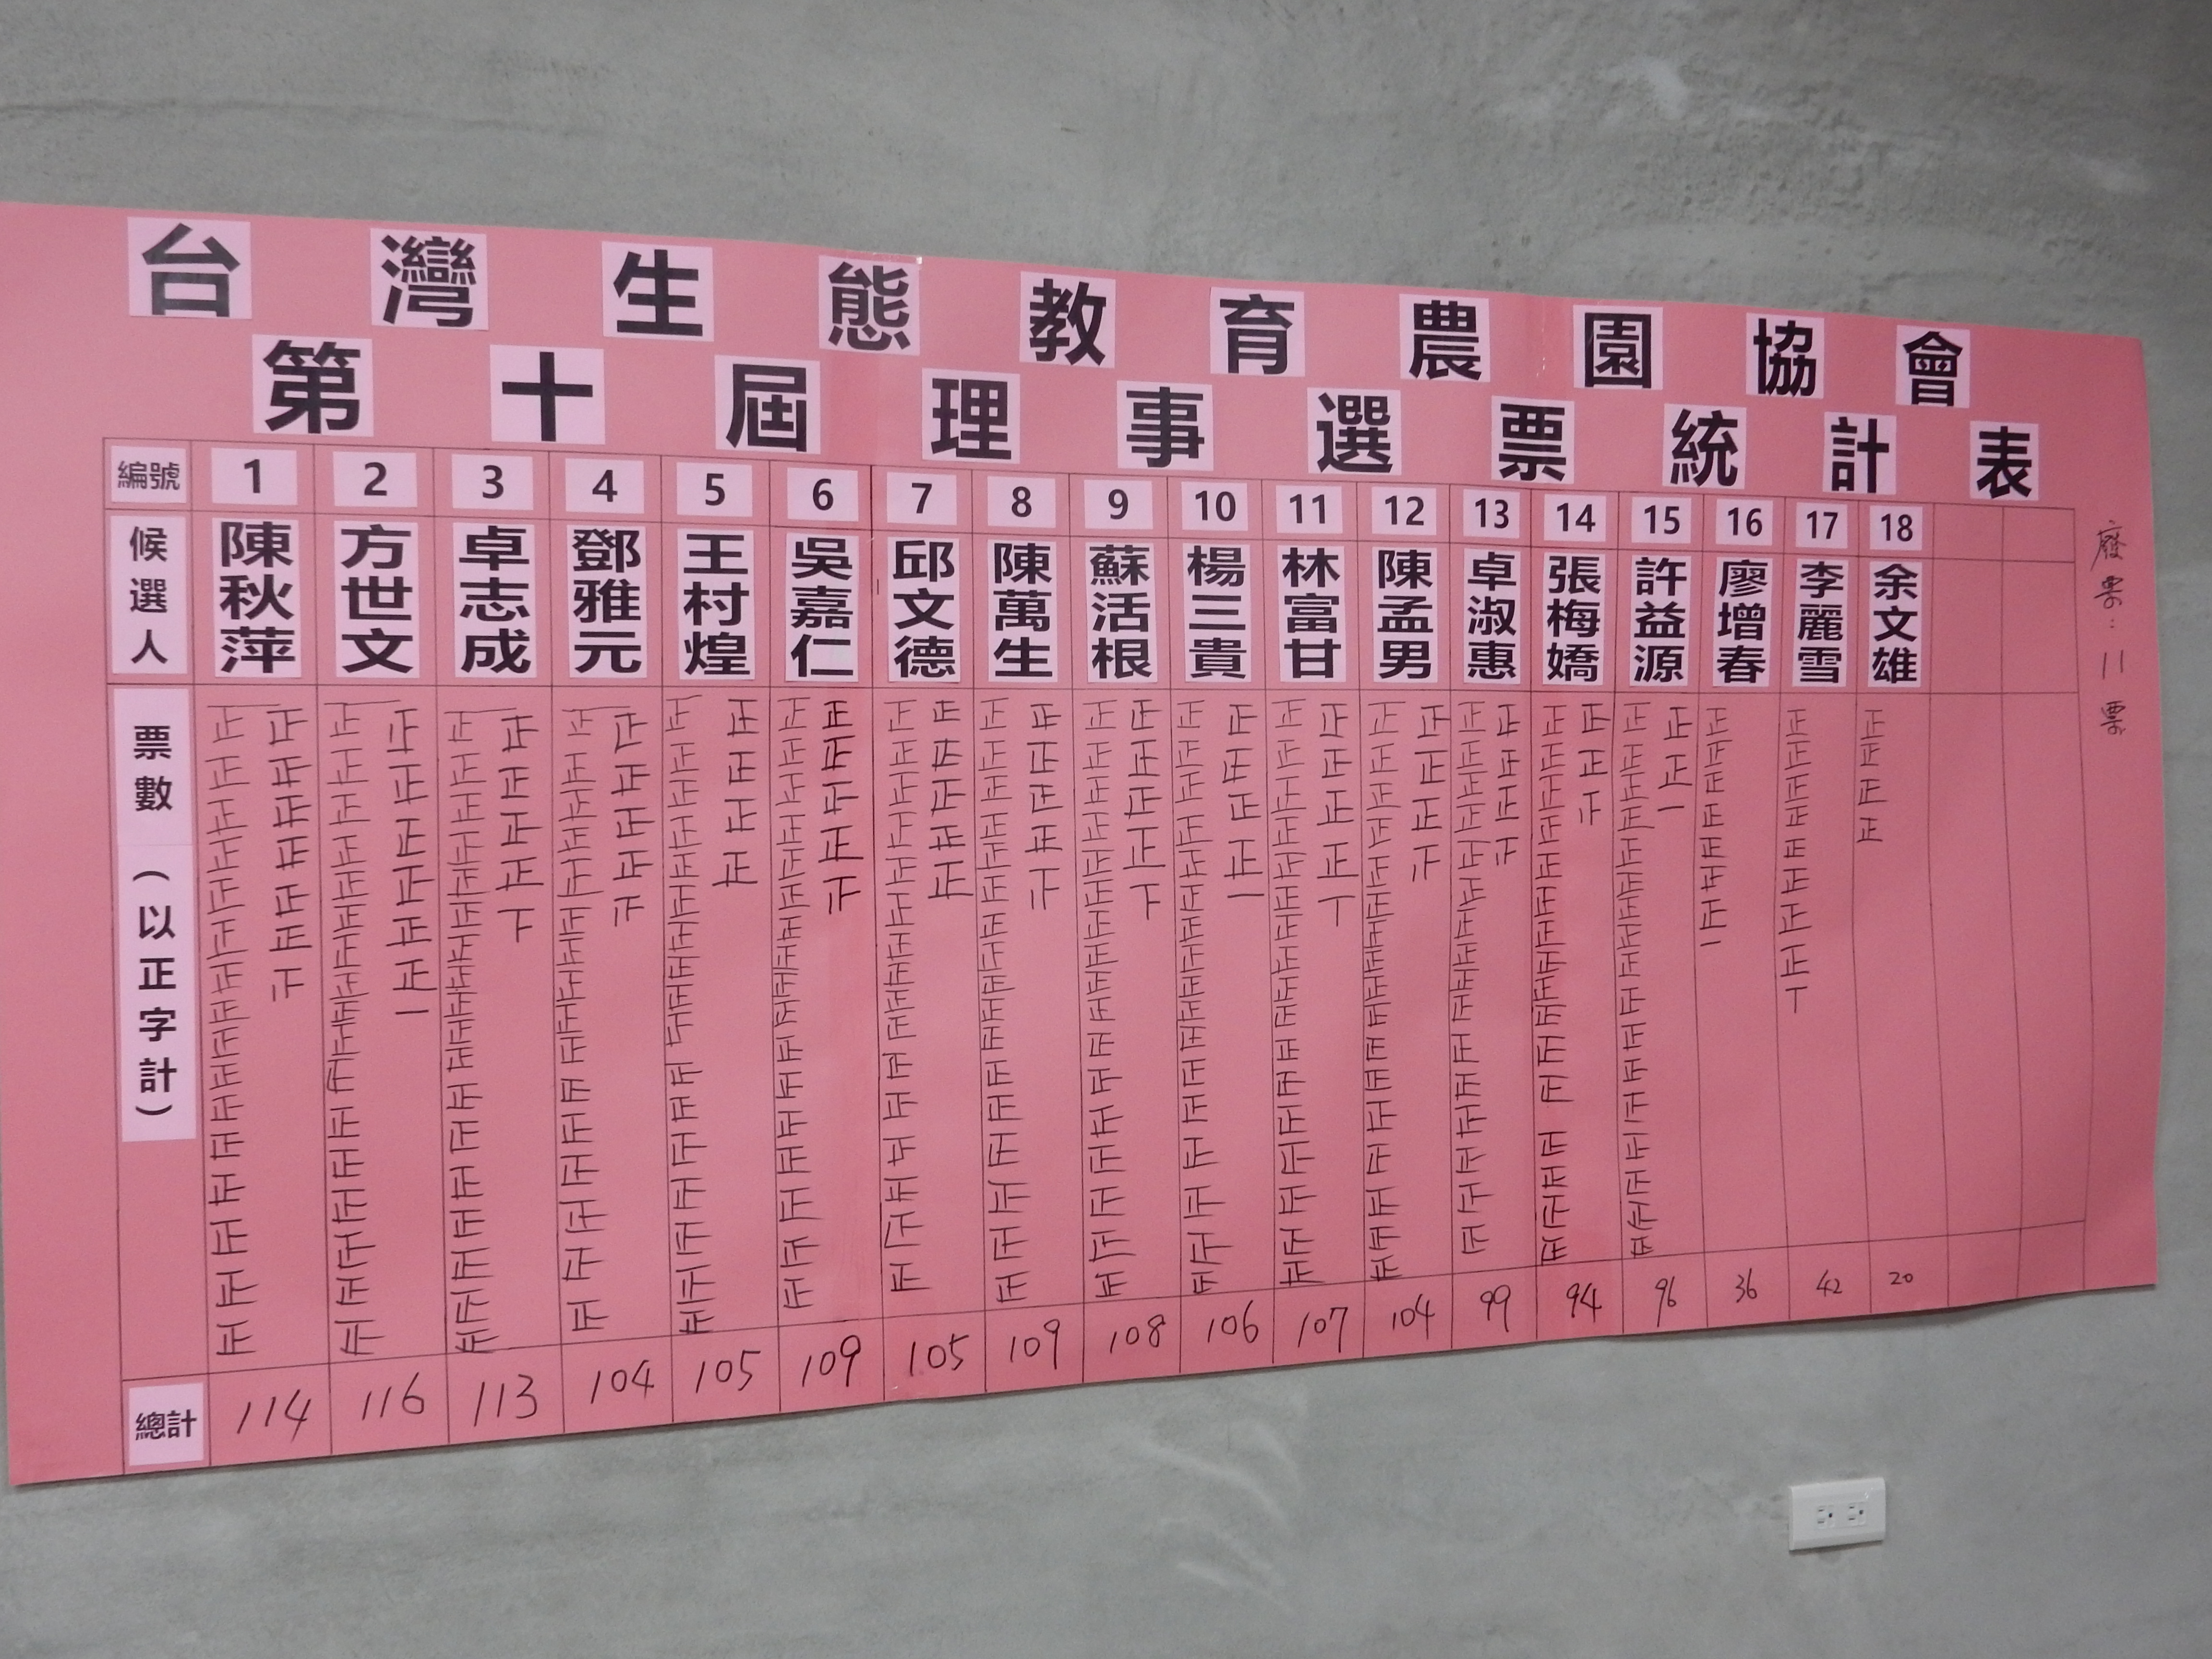 台灣生態教育農園協會
第十屆理事選票統計表
編號 1 2 3 4 5 6 7 8 9 10 11 12 13 14 15 16 17 18
候選人 陳秋萍 方世文 卓志成 鄧雅元 王村煌 吳嘉仁 邱文德 陳萬生 蘇活根 楊三貴 林富甘 陳孟男 卓淑惠 張梅嬌 許益源 廖增春 李麗雪 余文雄
票數（以正字計）
總計 114 116 113 104 105 109 105 109 108 106 107 104 99 94 96 36 42 20
廢票：11票